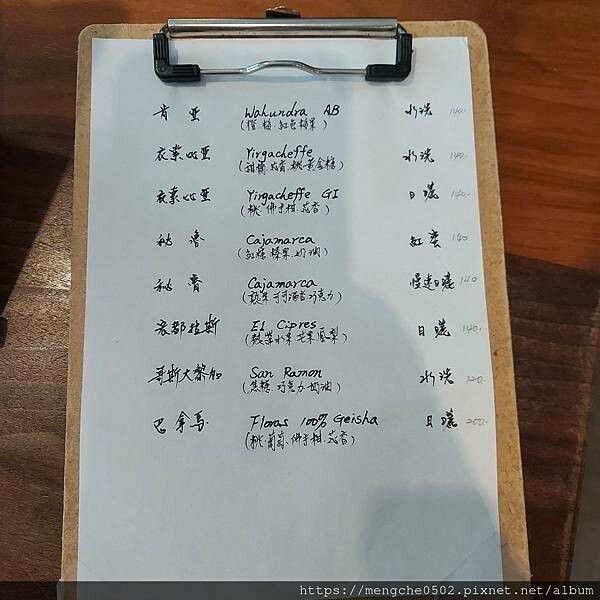 肯亞 Wahundra AB 水洗 140.
(橙.梅.紅色蘋果)
衣索比亞 Yirgacheffe 水洗 140.
(甜橘.花香.桃.黃金糖)
衣索比亞 Yirgacheffe G1 日曬 140.
(桃.佛手柑.花香)
祕魯 Cajamarca 紅蜜 140
奶油)
祕魯 Cajamarca 慢速日曬 140
巧克力)
宏都拉斯 El Cipres 日曬 140.
鳳梨)
哥斯大黎加 San Ramon 水洗 120.
(焦糖.巧克力.奶油)
巴拿馬 Floras 100% Geisha 日曬 200.
(桃.葡萄.佛手柑.花香)
https://mengche0502.pixnet.net/album